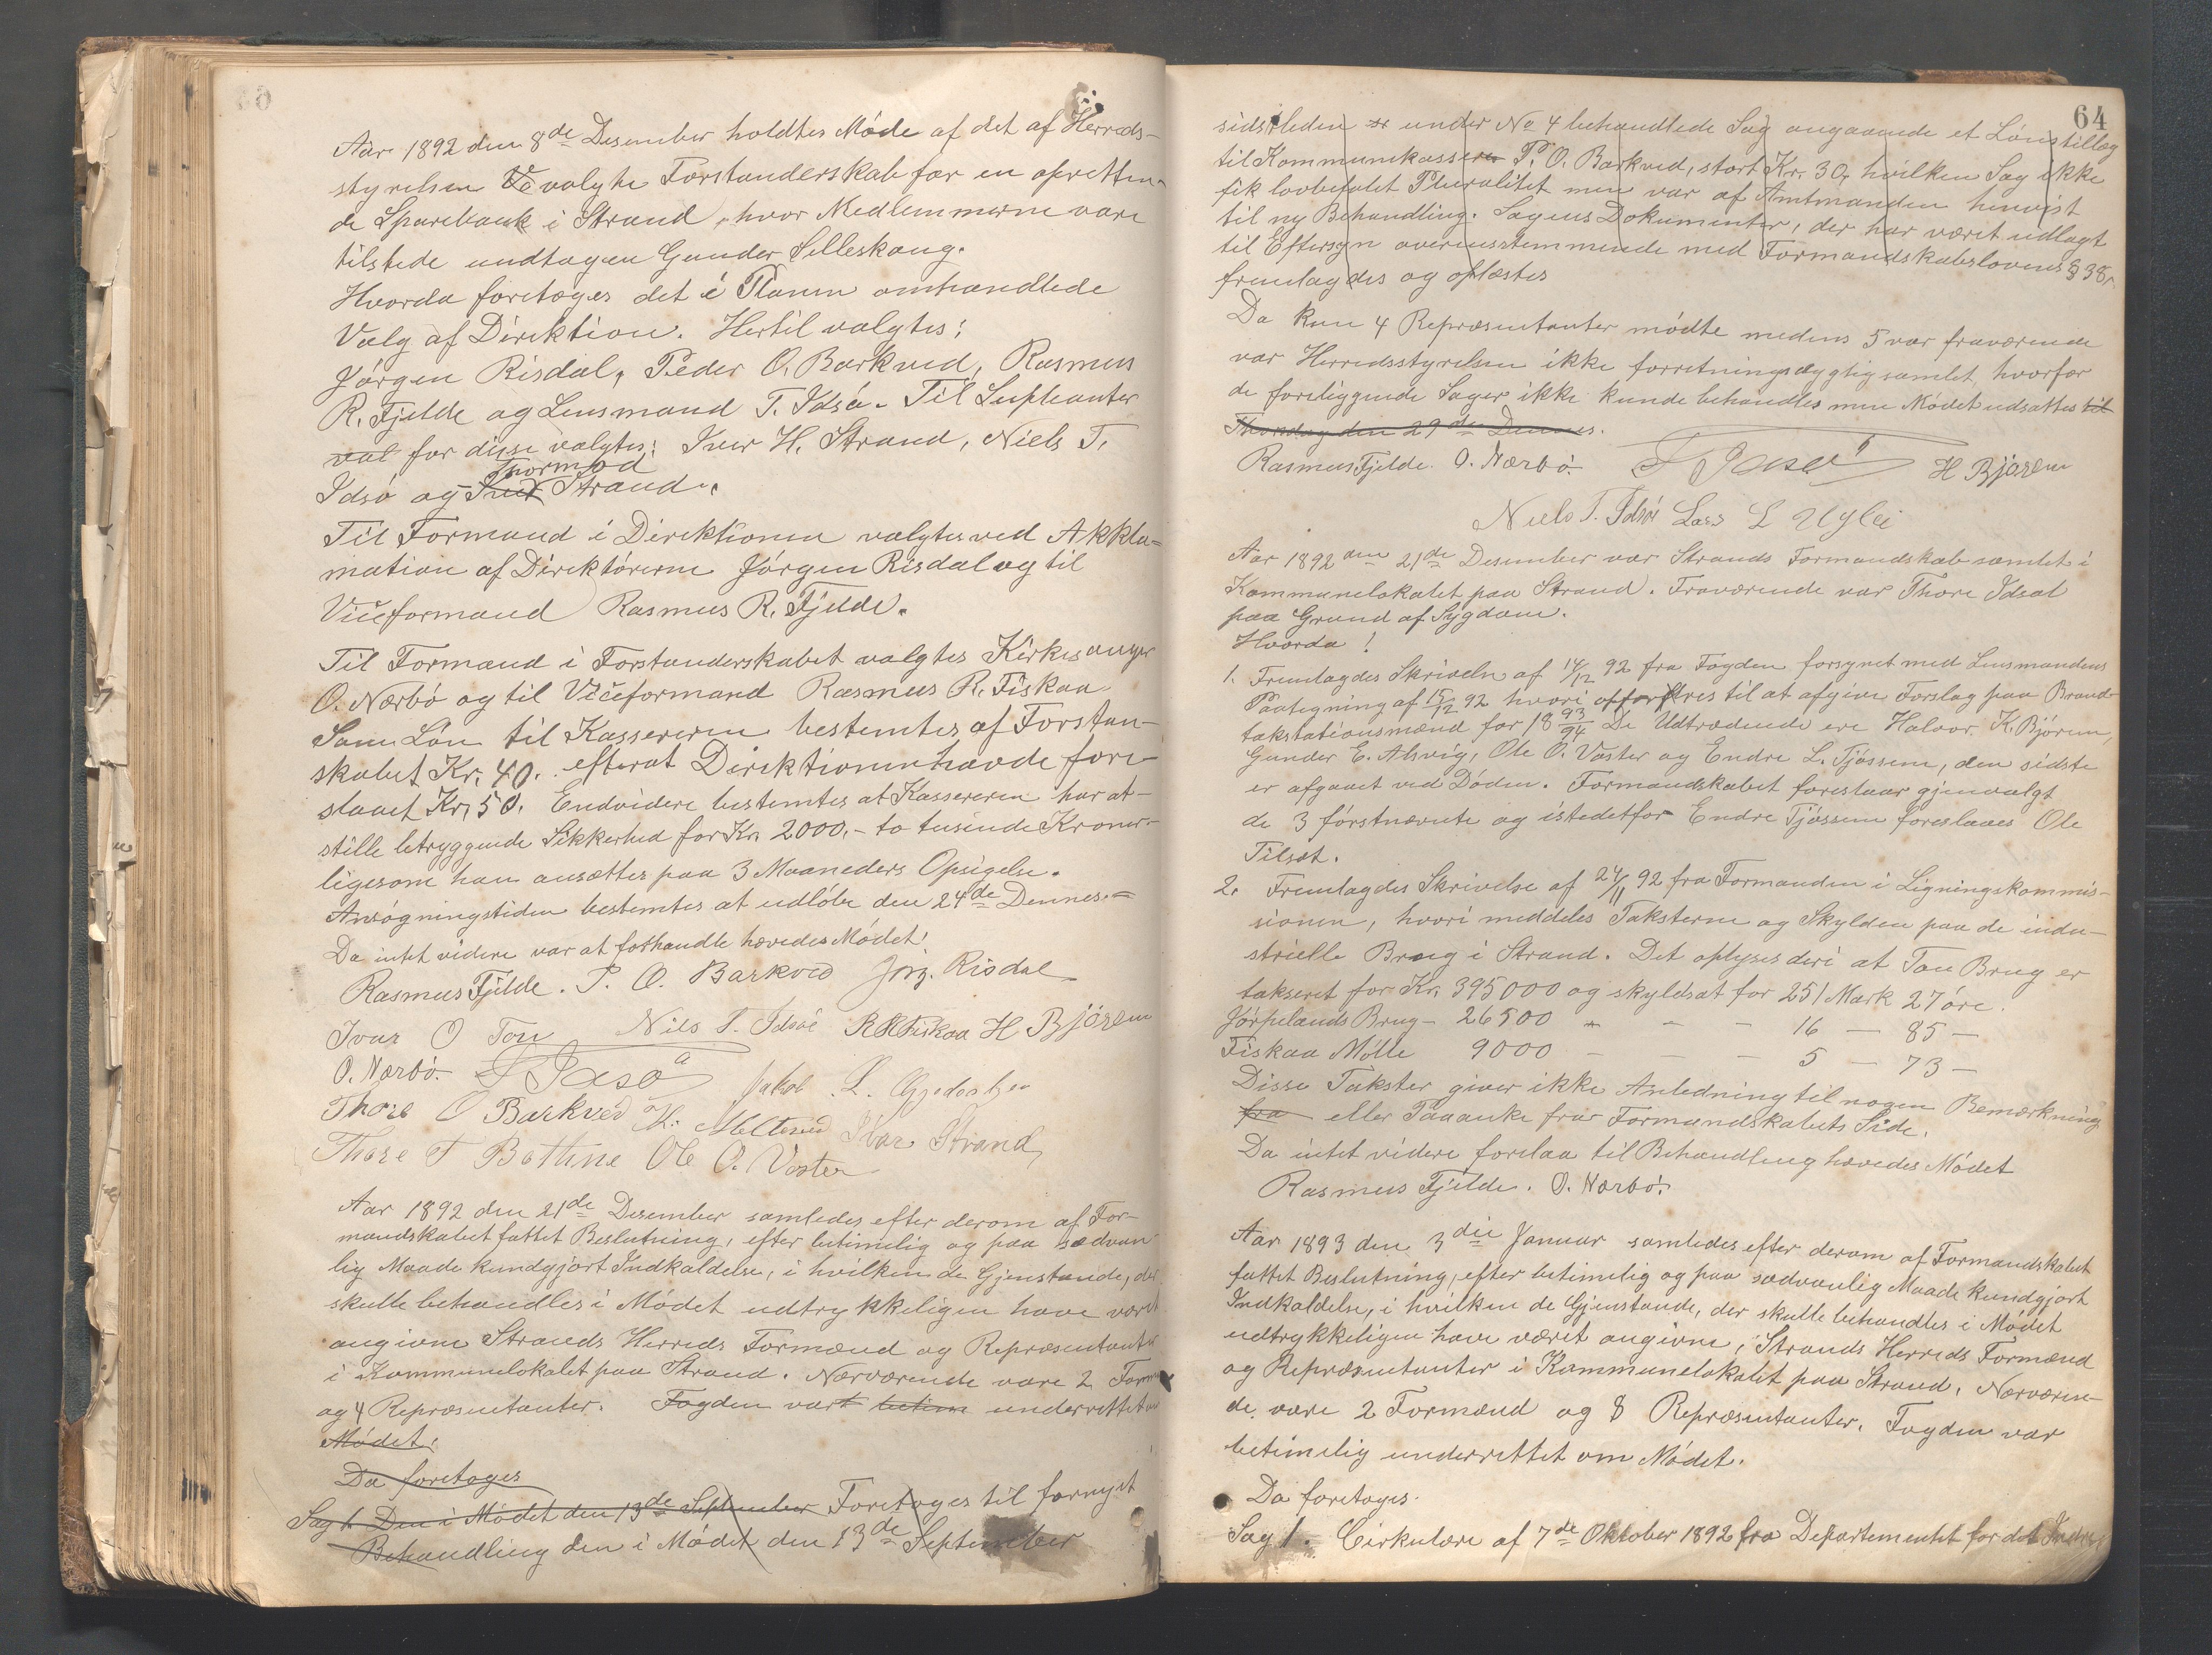 Aar 1892 den 8de Desember holdtes Møde af det af Herreds-
styrelsen Ve valgte Forstanderskab for en opretten-
de Sparebank i Strand, hvor Medlemmerne vare
tilstede undtagen Gunder Selleskaug.
Hvorda foretoges det i Planen omhandlede
Valg af Direktion. Hertil valgtes:
Jørgen Risdal, Peder O. Barkved, Rasmus
R. Fjelde og Lensmand T. Idsø. Til Supleanter
val for disse valgtes: Iver H. Strand, Niels T.
Thormod
Idsø og Strand.
Til Formand i Direktionen valgtes ved Akkla-
mation af Direktørerne Jørgen Risdal og til
Viceformand Rasmus R. Fjelde.
Til Formand i Forstanderskabet valgtes Kirkesanger
O. Nærbø og til Viceformand Rasmus R. Fiskaa
Som Løn til Kassereren bestemtes af Forstan-
skabet Kr. 40. efterat Direktionen havde fore-
slaaet Kr. 50. Endvidere bestemtes at Kassereren har at
stille betryggende Sikkerhed for Kr. 2000,- to tusinde Kroner-
ligesom han ansættes paa 3 Maaneders Opsigelse.
Ansøgningstiden bestemtes at udløbe den 24de Dennes.
Da intet videre var at forhandle hævedes Mødet.
Rasmus Fjelde. P. O. Barkved Jørg. Risdal
Ivar O Tou Nils T. Idsøe R R Fiskaa H Bjøren
O. Nærbø. T Idsø Jakob L.
Thore O Barkved Ivar Strand
Thore T Bothne Ole O. Vaster
Aar 1892 den 21de Desember samledes efter derom af For-
mandskabet fattet Beslutning, efter betimelig og paa sædvan-
lig Maade kundgjort Indkaldelse, i hvilken de Gjenstande, der
skulle behandles i Mødet udtrykkeligen have været
angivne Strands Herreds Formænd og Repræsentanter
i Kommunelokalet paa Strand. Nærværende vare 2 Formænd
og 4 Repræsentanter. Fogden vart betime underrettet om
Mødet.
Da foretoges
Sag 1. Den i Mødet den 13de September Foretoges til fornyet
Behandling den i Mødet den 13de September
64
sidstleden under No 4 behandlede Sag angaaende et Lønstillæg
til Kommunekasserer P. O. Barkved, stort Kr. 30, hvilken Sag ikke
fik lovbefalet Pluralitet men var af Amtmanden henvist
til ny Behandling. Sagens Dokumenter, der har været udlagt
til Eftersyn overensstemmende med Formandskabslovens § 38,
fremlagdes og oplæstes
Da kun 4 Repræsentanter mødte medens 5 var fraværende
var Herredsstyrelsen ikke forretningsdygtig samlet, hvorfor
de foreliggende Sager ikke kunde behandles men Mødet udsattes til
Thorsdag den 29de Dennes.
Rasmus Fjelde. O. Nærbø. T Idsø H Bjøren
Niels T. Idsøe Lars L
Aar 1892 den 21de Desember var Strands Formandskab samlet i
Kommunelokalet paa Strand. Fraværende var Thore Idsal
paa Grund af Sygdom.
Hvorda!
1. Fremlagdes Skriveln af 14/12 92 fra Fogden forsynet med Lensmandens
Paategning af 15/12 92 hvori opfordres til at afgive Forslag paa Brand-
takstationsmænd for 18 93/94 De Udtrædende ere Halvor K. Bjøren,
Gunder E. Alsvig, Ole O. Vaster og Endre L. Tjøssem, den sidste
er afgaaet ved Døden. Formandskabet foreslaar gjenvalgt
de 3 førstnævnte og istedetfor Endre Tjøssem foreslaaes Ole
Tilsat.
2. Fremlagdes Skrivelse af 24/11 92 fra Formanden i Ligningskommis-
sionen, hvori meddeles Taksterne og Skylden paa de indu-
strielle Brug i Strand. Det oplyses deri at Tou Brug er
takseret for Kr. 395000 og skyldsat for 251 Mark 27 øre.
Jørpelands Brug - 26500 - - - 16 - 85 -
Fiskaa Mølle 9000 - - - 5 - 73 -
Disse Takster giver ikke Anledning til nogen Bemærkning
fra eller Paaanke fra Formandskabets Side.
Da intet videre forelaa til Behandling hævedes Mødet
Rasmus Fjelde. O. Nærbø.
Aar 1893 den 3die Januar samledes efter derom af Formandskabet
fattet Beslutning, efter betimelig og paa sædvanlig Maade kundgjort
Indkaldelse, i hvilken de Gjenstande, der skulle behandles i Mødet
udtrykkeligen have været angivne, Strands Herreds Formænd
og Repræsentanter i Kommunelokalet paa Strand. Nærværen-
de vare 2 Formænd og 8 Repræsentanter. Fogden var
betimelig underrettet om Mødet.
Da foretoges.
Sag 1. Cirkulære af 7de Oktober 1892 fra Departementet for det Indre